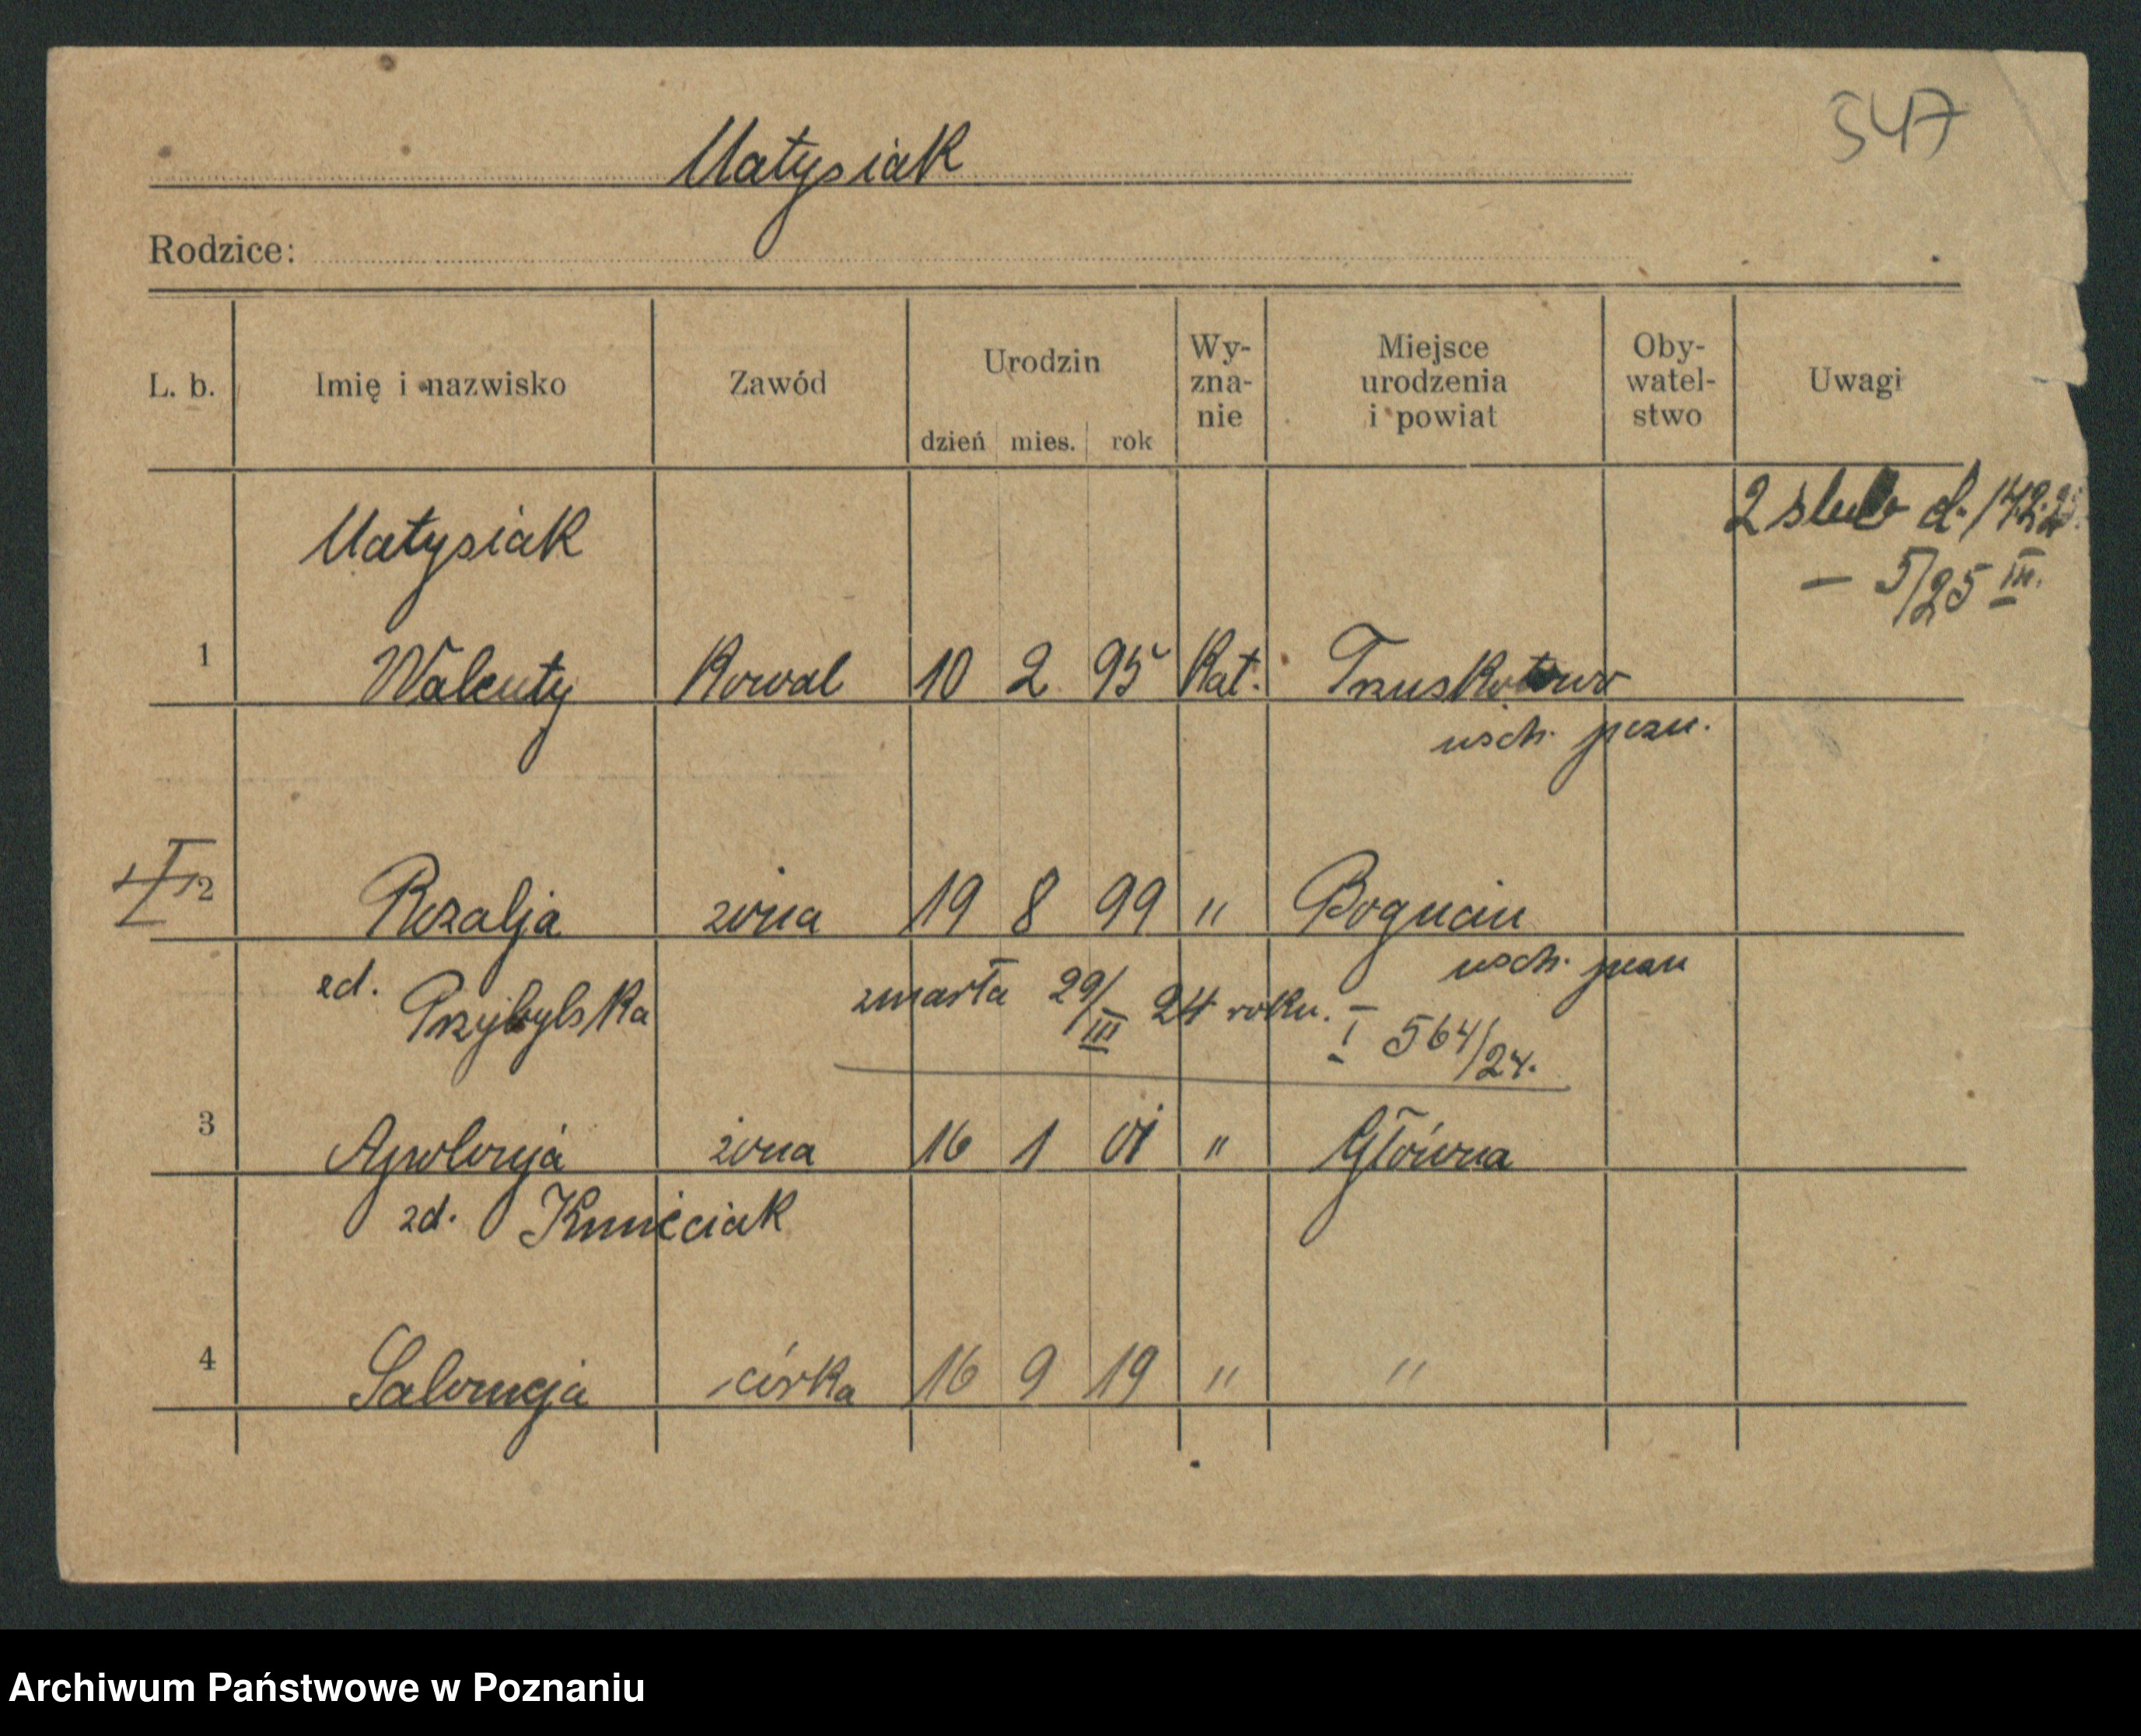 547
Matysiak
Rodzice:
L. b. Imię i nazwisko Zawód Urodzin dzień mies. rok Wy-zna-nie Miejsce urodzenia i powiat Oby-watel-stwo Uwagi
2 slub d.
Matysiak
— 5/25 III.
1 Walenty Kowal 10 2 95 Kat. Truskotowo
wsch. pozn.
2 Rozalja żona 19 8 99 " Bogucin
wsch. pozn
zd. Przybylska zmarła 29/III 24 roku. — I 564/24.
3 Apolonja żona 16 1 01 " Główna
zd. Kmieciak
4 Salomeja córka 16 9 19 " "
Archiwum Państwowe w Poznaniu